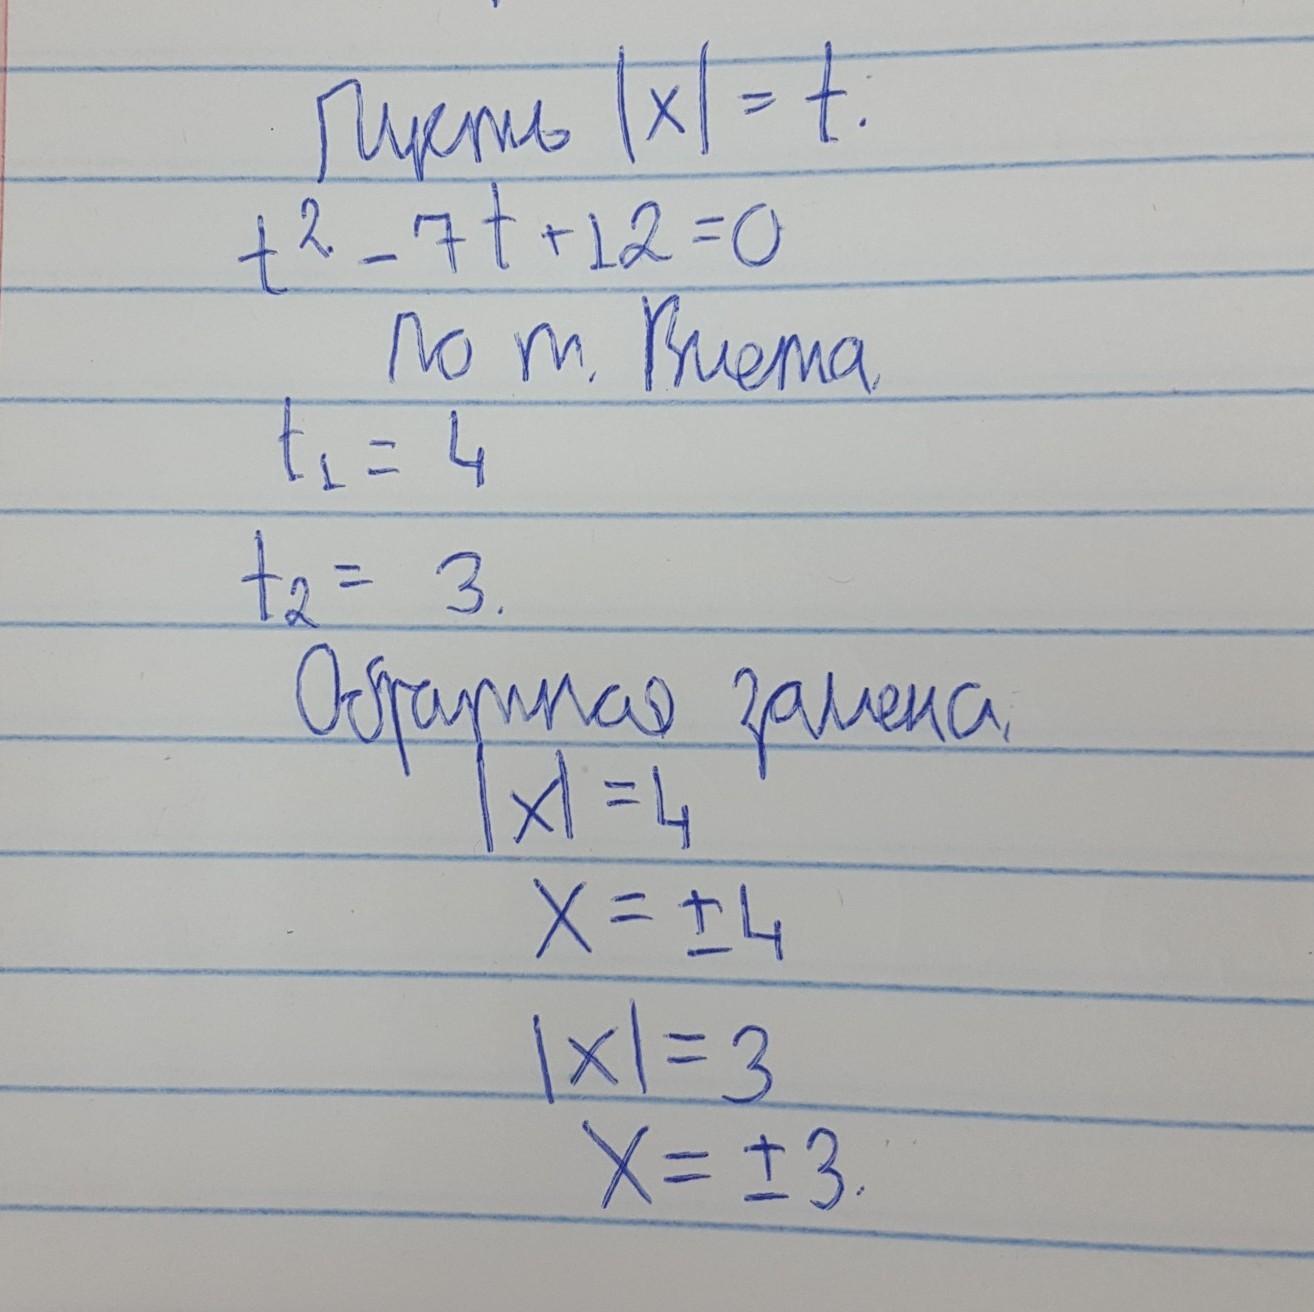 Пусть |x| = t.
t² - 7t + 12 = 0
По т. Виета.
t₁ = 4
t₂ = 3.
Обратная замена.
|x| = 4
x = ±4
|x| = 3
x = ±3.